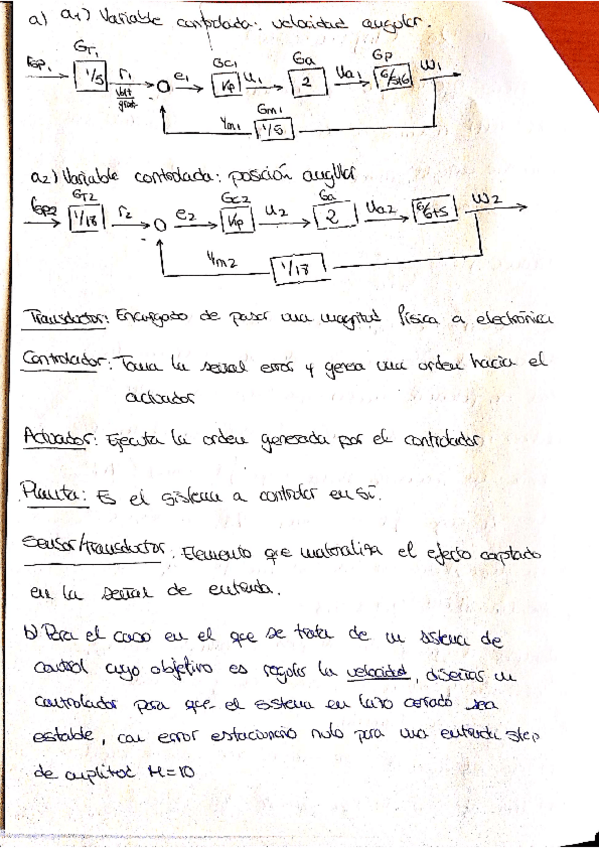 a) a1) Variable controlada: velocidad angular.
GT1 Gc1 Ga Gp
1/5 r1 e1 Kp u1 2 Ua1 6/s+6 W1
volt
Gm1
Ym1 1/5
a2) Variable controlada: posición angular
GT2 Gc2 Ga
1/18 r2 e2 Kp u2 2 Ua2 6/6+s W2
Ym2 1/18
Transductor: Encargado de pasar una magnitud física a electrónica
Controlador: Toma la señal error y genera una orden hacia el
actuador
Actuador: Ejecuta la orden generada por el controlador
Planta: Es el sistema a controlar en sí.
Sensor/transductor: Elemento que materializa el efecto captado
en la señal de entrada.
b) Para el caso en el que se trata de un sistema de
control cuyo objetivo es regular la velocidad, diseñas un
controlador para que el sistema en lazo cerrado sea
estable, con error estacionario nulo para una entrada step
de amplitud M=10